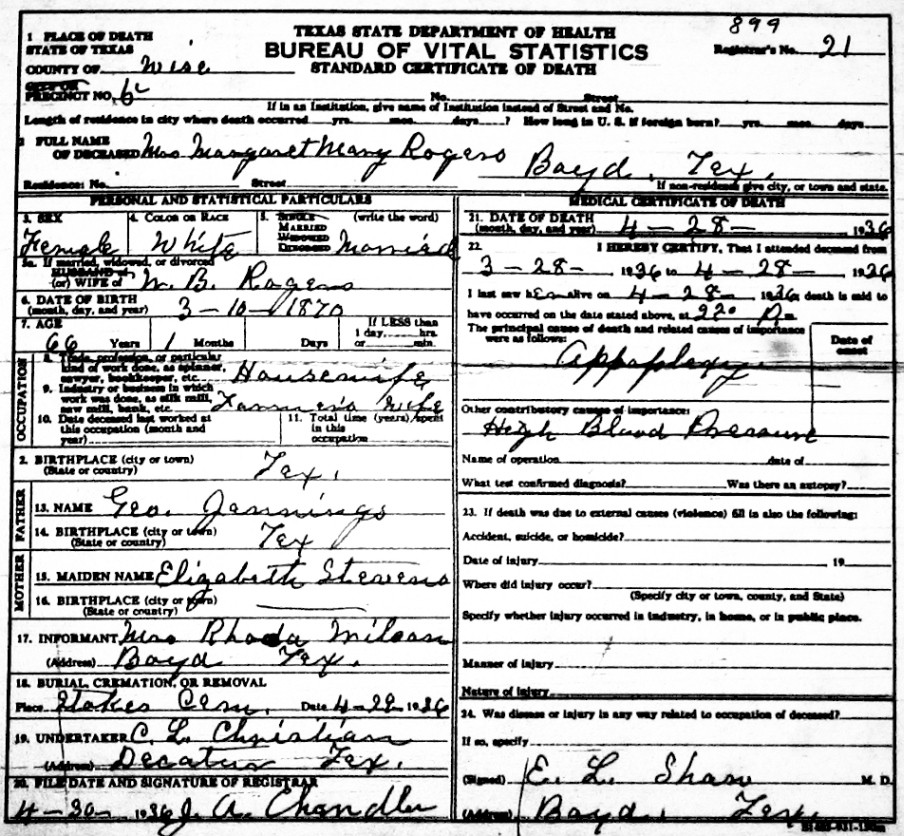 TEXAS STATE DEPARTMENT OF HEALTH
BUREAU OF VITAL STATISTICS
STANDARD CERTIFICATE OF DEATH
899
Registrar's No. 21
1 PLACE OF DEATH
STATE OF TEXAS
COUNTY OF Wise
CITY OR
PRECINCT NO. 6 No. Street
If in an Institution, give name of Institution instead of Street and No.
Length of residence in city where death occurred yrs. mos. days ? How long in U. S. if foreign born? yrs. mos. days
2 FULL NAME
OF DECEASED Mrs Margaret Mary Rogers Boyd, Tex.
Residence: No. Street If non-resident give city, or town and state.
PERSONAL AND STATISTICAL PARTICULARS
3. SEX Female
4. COLOR OR RACE White
5. SINGLE
MARRIED
WIDOWED
DIVORCED
(write the word) Married
5a. If married, widowed, or divorced
HUSBAND of
(or) WIFE of B. Rogers
6. DATE OF BIRTH
(month, day, and year) 3-10-1870
7. AGE
66 Years 1 Months Days
If LESS than
1 day, hrs.
or min.
OCCUPATION
8. Trade, profession, or particular
kind of work done, as spinner,
sawyer, bookkeeper, etc. Housewife
9. Industry or business in which
work was done, as silk mill,
saw mill, bank, etc. Farmers Wife
10. Date deceased last worked at
this occupation (month and
year)
11. Total time (years) spent
in this
occupation
2. BIRTHPLACE (city or town)
(State or country) Tex.
FATHER
13. NAME Geo. Jennings
14. BIRTHPLACE (city or town)
(State or country) Tex
MOTHER
15. MAIDEN NAME Elizabeth Stevens
16. BIRTHPLACE (city or town)
(State or country)
17. INFORMANT Mrs Rhoda Wilson
(Address) Boyd Tex.
18. BURIAL, CREMATION, OR REMOVAL
Place Stokes Cem. Date 4-29-1936
19. UNDERTAKER C. L. Christian
(Address) Decatur Tex.
20. FILE DATE AND SIGNATURE OF REGISTRAR
4-30-1936 J. A. Chandler
MEDICAL CERTIFICATE OF DEATH
21. DATE OF DEATH
(month, day, and year) 4-28-1936
22. I HEREBY CERTIFY, That I attended deceased from
3-28-1936 to 4-28-1936
I last saw her alive on 4-28-1936, death is said to
have occurred on the date stated above, at 220 P m.
The principal cause of death and related causes of importance
were as follows:
Date of
onset
Appoplexy
Other contributory causes of importance:
High Blood Pressure
Name of operation date of
What test confirmed diagnosis? Was there an autopsy?
23. If death was due to external causes (violence) fill in also the following:
Accident, suicide, or homicide?
Date of injury 19
Where did injury occur?
(Specify city or town, county, and State)
Specify whether injury occurred in industry, in home, or in public place.
Manner of injury
Nature of injury
24. Was disease or injury in any way related to occupation of deceased?
If so, specify
(Signed) E. L. Shaw M. D.
(Address) Boyd, Tex.